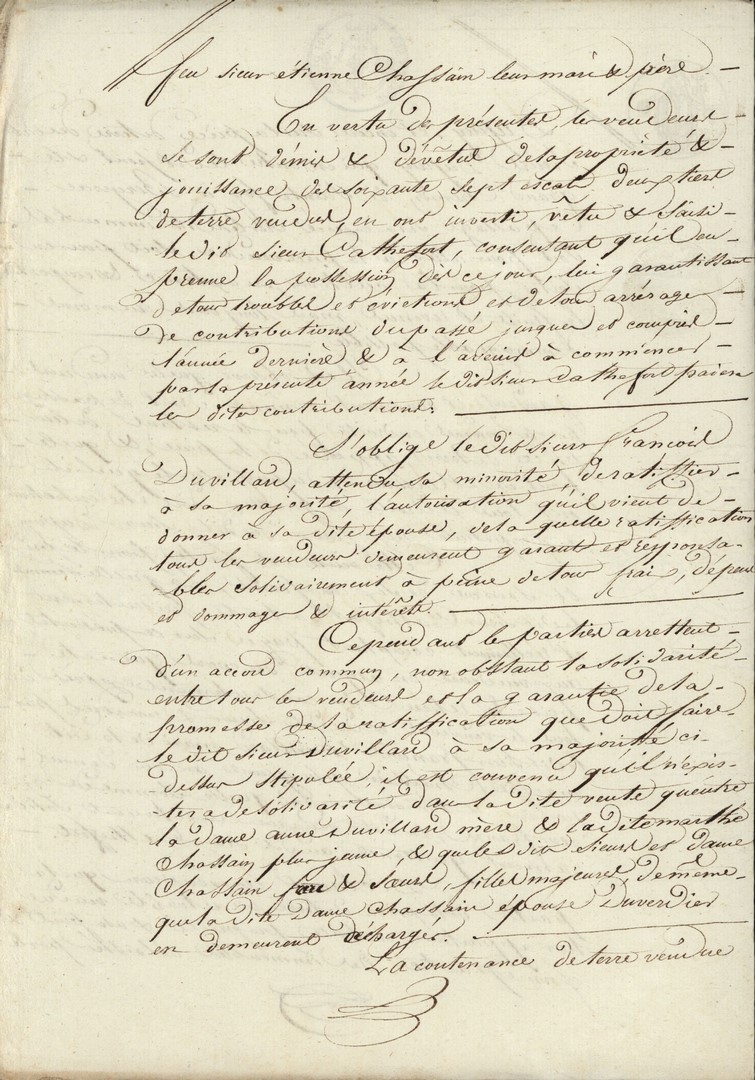 feu sieur étienne Chassain leur mari & père. —
En vertu des présentes, les vendeurs
se sont démis & dévêtus de la propriété & —
jouissance des soixante sept escats deux tiers
de terre vendus, en ont investi, vêtu & saisi —
le dit sieur Cathefort, consentant qu'il en
prenne la possession dès ce jour, lui garantissant
de tous troubles et evictions et de tous arrérages
de contributions du passé jusques et compris —
l'année dernière & à l'avenir à commencer —
par la présente année le dit sieur Cathefort paiera
les dites contributions. —
S'oblige le dit sieur François
Duvillard, attendu sa minorité, de ratiffier —
à sa majorité, l'autorisation qu'il vient de —
donner à sa dite épouse, de la quelle ratiffication
tous les vendeurs demeurent garants et responsa-
-bles solidairement à peine de tous frais, depens
et dommages & intérêts. —
Cependant les parties arrettent —
d'un accord commun, nonobstant la solidarité —
entre tous les vendeurs et la garantie de la —
promesse de la ratiffication que doit faire —
le dit sieur Duvillard à sa majorité ci-
dessus stipulée, il est convenu qu'il n'exis-
-tera de solidarité dans la dite vente qu'entre
la dame anne Duvillard mère & la dite marthe
Chassain plus jeune, & que les dits sieurs et dame
Chassain & sœurs, filles majeures, de même —
que la dite Dame Chassain épouse Duverdier
en demeurent décharges. —
La contenance de terre vendue